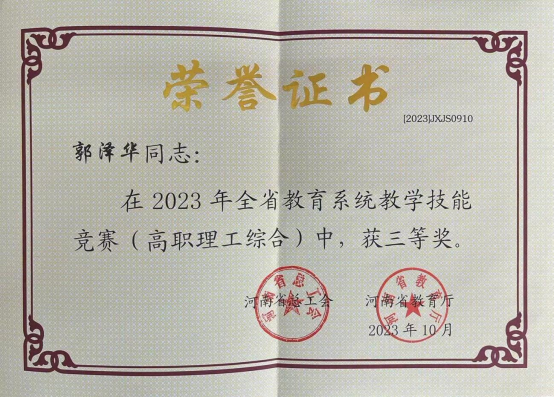 荣誉证书
[2023]JXJS0910
郭泽华同志：
在2023年全省教育系统教学技能
竞赛（高职理工综合）中，获三等奖。
河南省总工会 河南省教育厅
2023年10月
河南省总工会
河南省教育厅